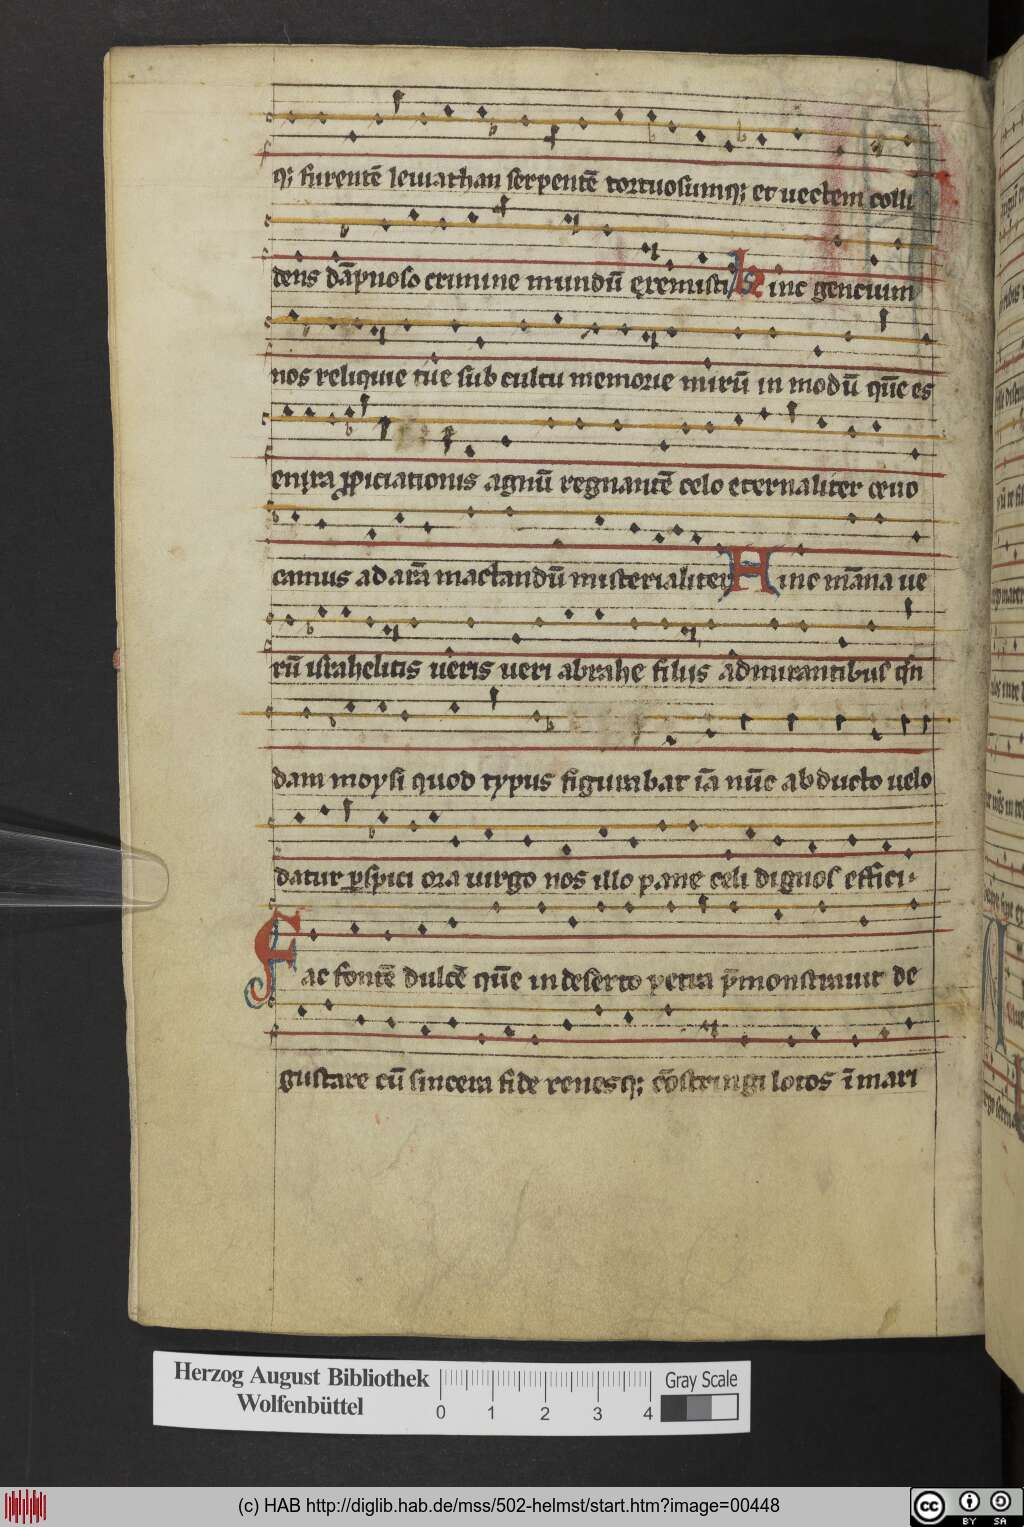 q; furentē leuiathan serpentē tortuosumq; et uectem colli
dens dāpnoso crimine mundū exemisti hinc gencium
nos reliquie tue sub cultu memorie mirū in modū quē es
enixa ꝓpiciationis agnū regnantē celo eternaliter euo
camus ad arā mactandū misterialiter Hinc māna ue
rū israhelitis ueris ueri abrahe filiis admirantibus qn̄
dam moysi quod typus figurabat iā nūc abducto uelo
datur ꝑspici ora uirgo nos illo pane celi dignos effici
Fac fontē dulcē quē in deserto petra p̄monstrauit de
gustare cū sincera fide renesq; cōstringi lotos ī mari
Herzog August Bibliothek
Wolfenbüttel
0 1 2 3 4
Gray Scale
(c) HAB http://diglib.hab.de/mss/502-helmst/start.htm?image=00448
cc BY SA